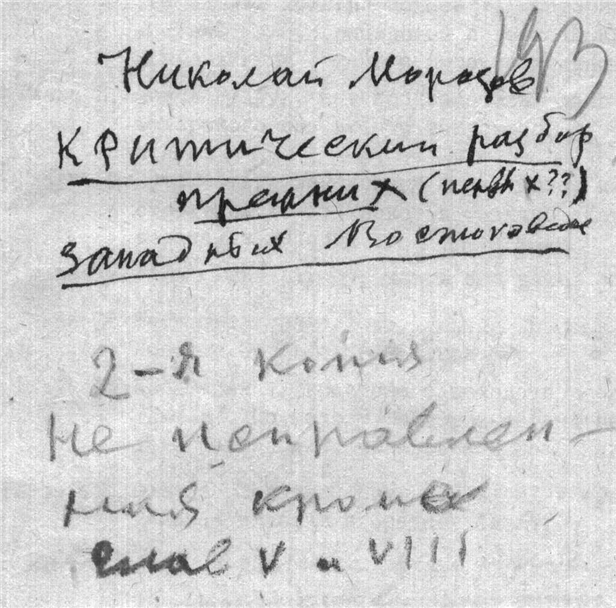 193
Николай Морозов
Критический разбор
прежних (первых??)
западных Востоковедов
2-я копия
не исправлен-
ная кроме
глав V и VIII